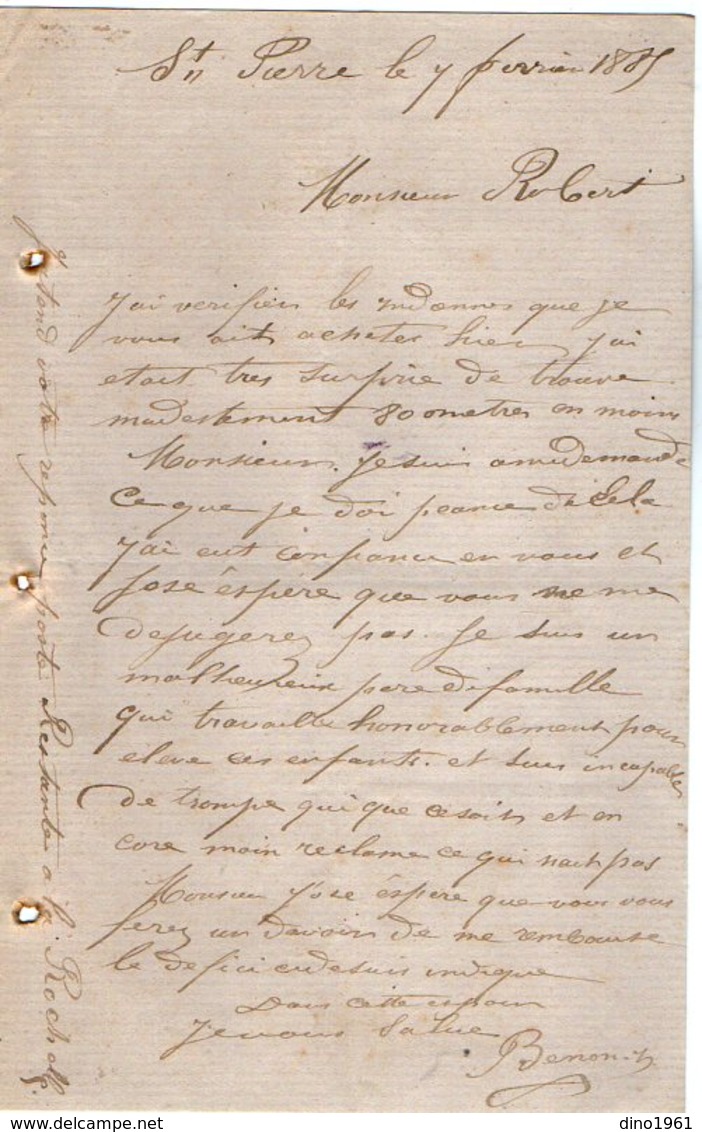 St Pierre le 7 fevrier 1885
Monsieur Robert
J'ai verifier les que je
vous ait achetes hier j'ai
etait tres surprie de trouve
modestement 80 metres en moins
Monsieur. Je suis a me demande
ce que je doi pance de cela
J'ai eut confiance en vous et
jose éspére que vous ne me
pas. Je suis un
malheureux pere de famille
qui travaille honorablement pour
eleve ces enfants. et suis incapable
de trompe qui que ce soit et en
core moin reclame ce qui nait pas
Monsieur J'ose éspere que vous vous
ferez un devoir de me rembourse
le defici cidesuis indique
Dans cette espoir
Je vous Salue
Benoit
J'atend votre reponce poste Restante a la Rochelle
dino1961